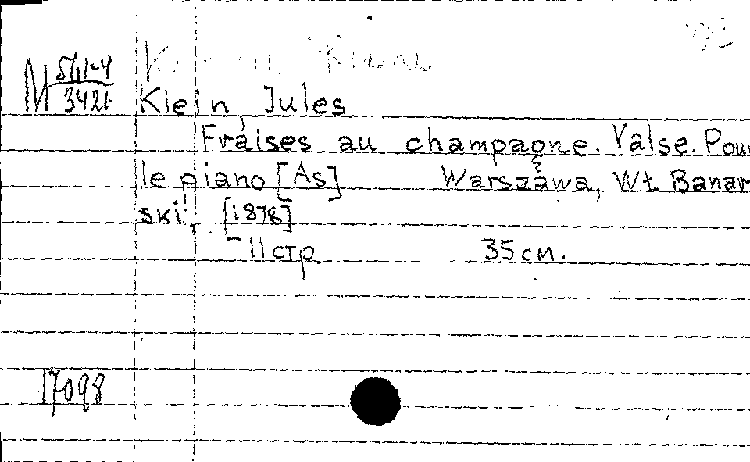 M 541-4
3421
Klein, Jules
Fraises au champagne. Valse. Pour
le piano [As] Warszawa, Wł. Banar
ski, [1878]
11 стр 35 см.
17098